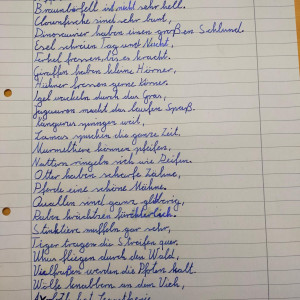 Braunbärfell ist nicht sehr hell.
Clownfische sind sehr bunt,
Dinosaurier haben einen großen Schlund.
Esel schreien Tag und Nacht,
Ferkel fressen bis es kracht.
Giraffen haben kleine Hörner,
Hühner fressen gerne Körner.
Igel wackeln durch das Gras,
Jaguaren macht das laufen Spaß.
Kängurus springen weit,
Lamas spucken die ganze Zeit.
Murmeltiere können pfeifen,
Nattern ringeln sich wie Reifen.
Otter haben scharfe Zähne,
Pferde eine schöne Mähne.
Quallen sind ganz glibbrig,
Raben krächzen fürchterlich.
Stinktiere müffeln gar sehr,
Tiger tragen die Streifen quer.
Uhus fliegen durch den Wald,
Vielfraßen werden die Pfoten kalt.
Wölfe knabbern an dem Vieh,
hat